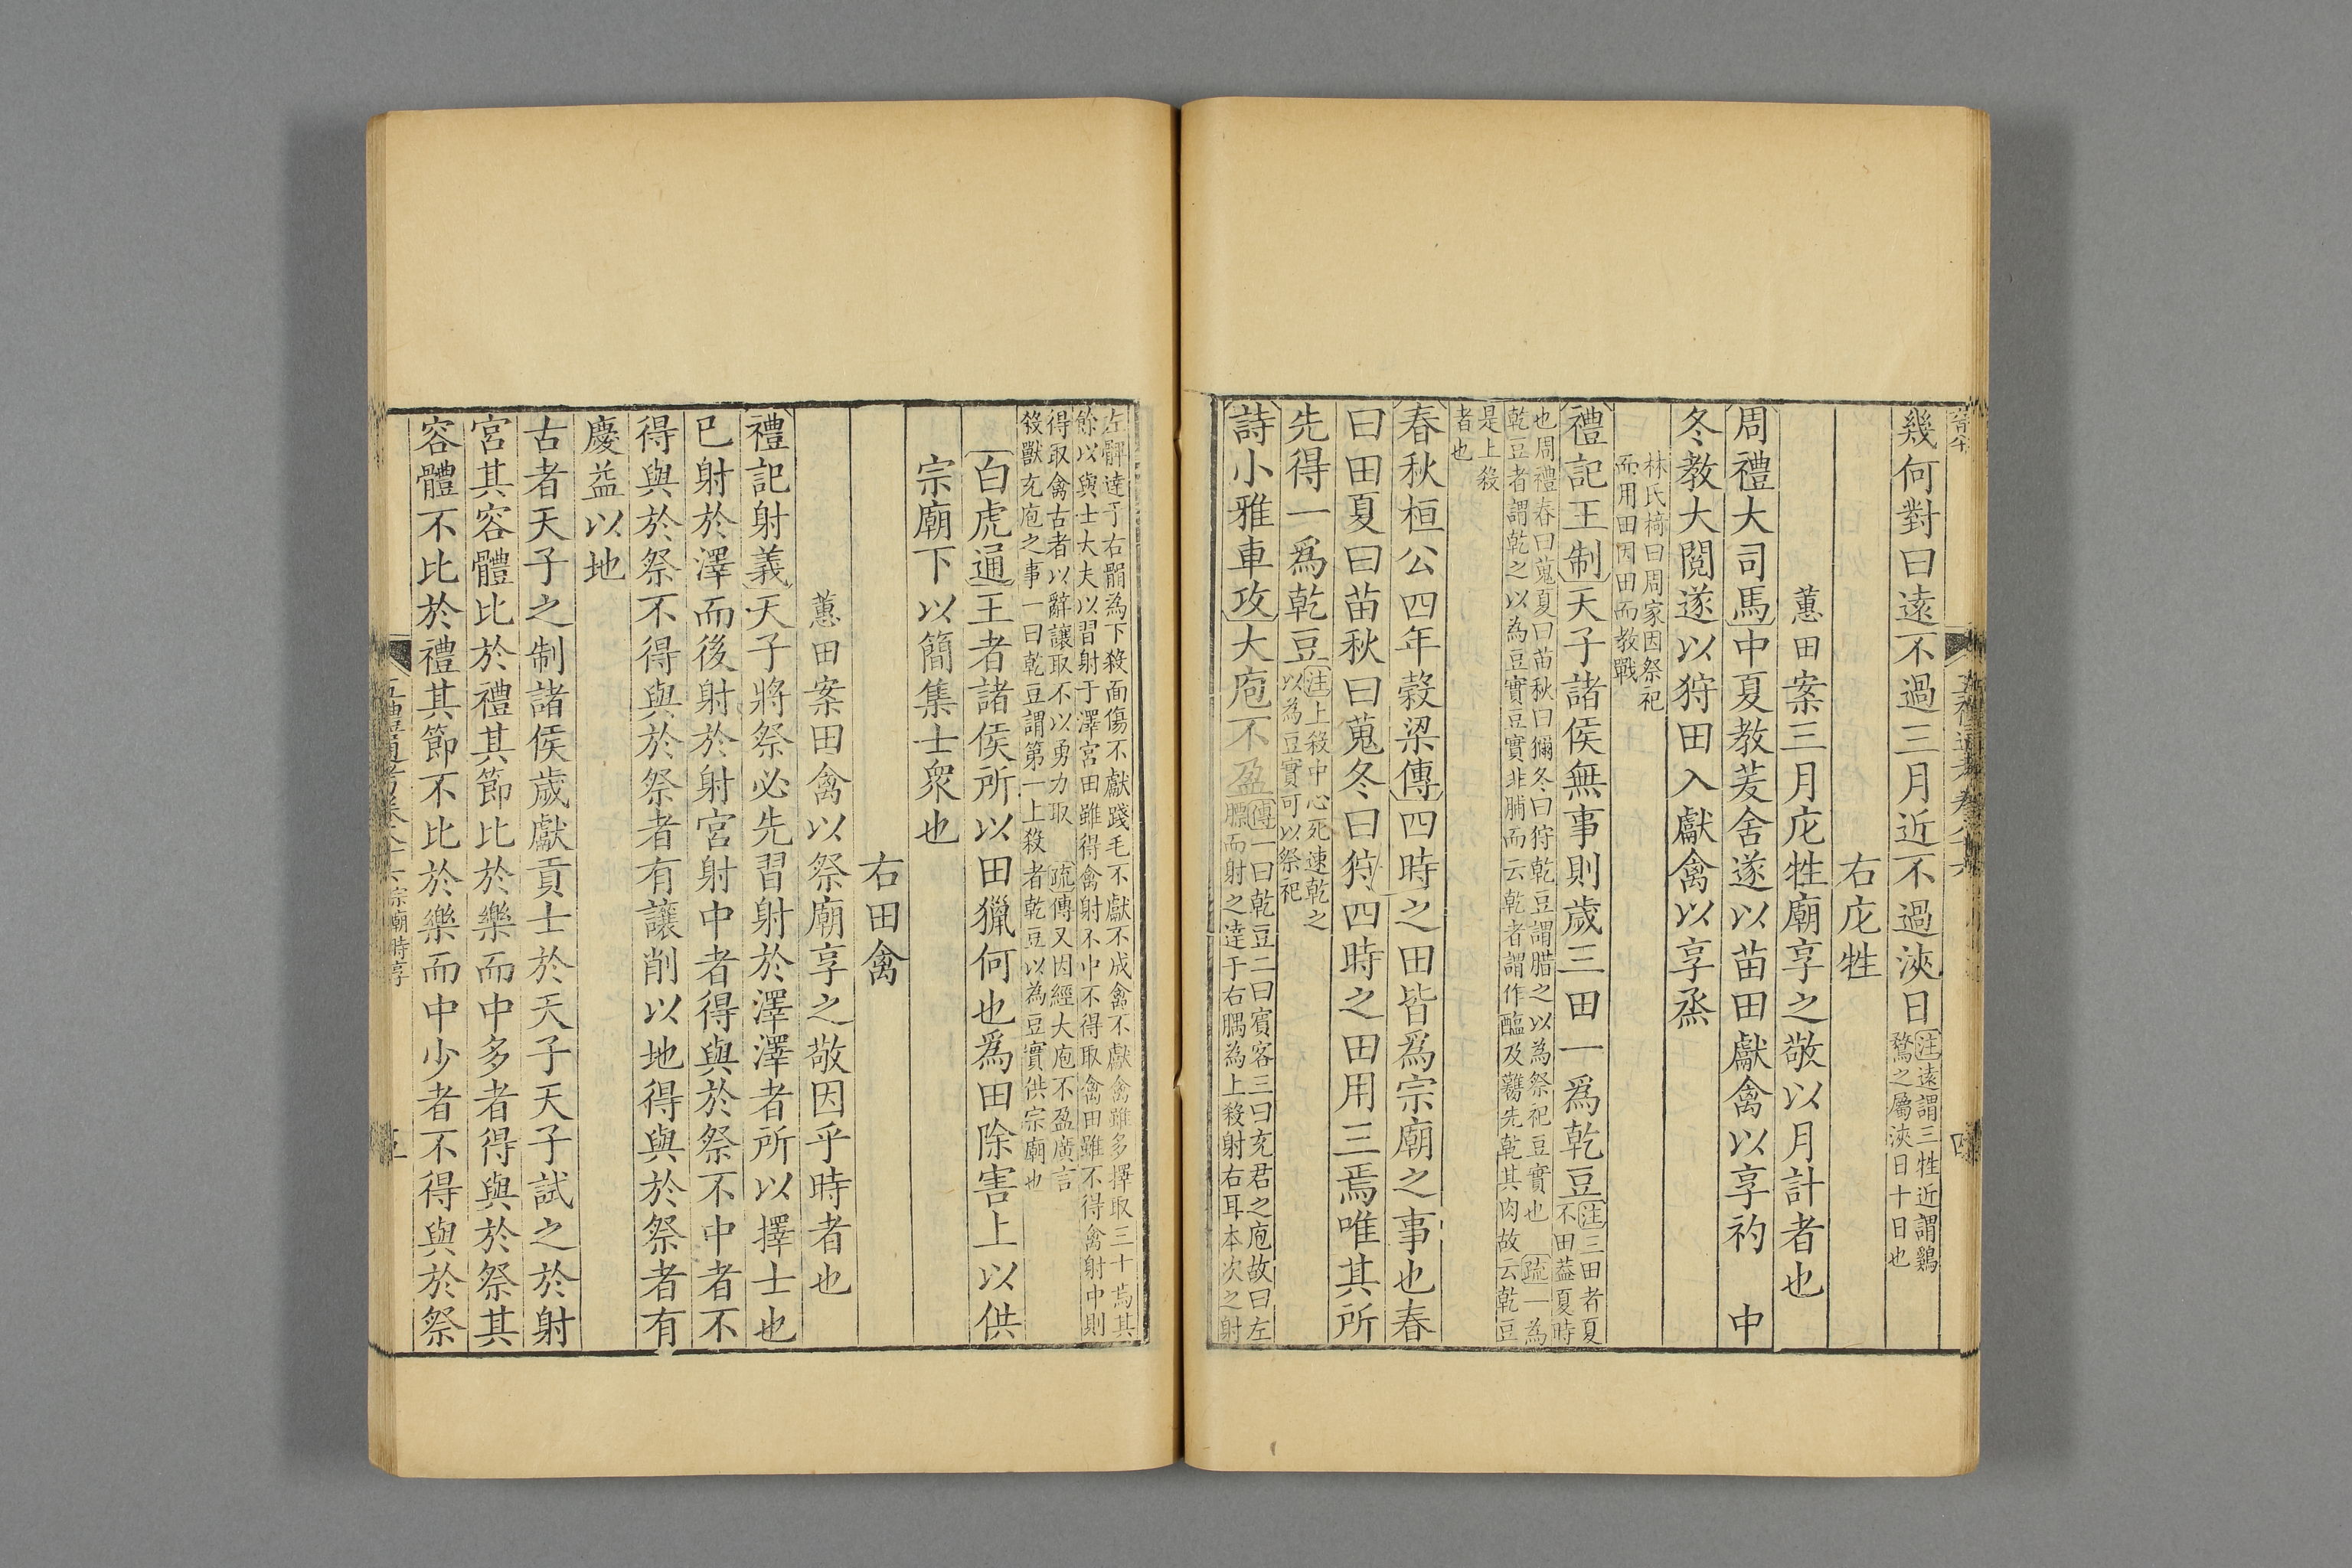 幾何對曰遠不過三月近不過浹日注遠謂三牲近謂鷄鶩之屬浹日十日也
右庀牲
蕙田案三月庀牲廟享之敬以月計者也
周禮大司馬中夏教茇舍遂以苗田獻禽以享礿　中
冬教大閱遂以狩田入獻禽以享烝
林氏椅曰周家因祭祀而用田因田而教戰
禮記王制天子諸侯無事則歲三田一爲乾豆注三田者夏不田蓋夏時
也周禮春曰蒐夏曰苗秋曰獮冬曰狩乾豆謂腊之以為祭祀豆實也　疏一為乾豆者謂乾之以為豆實豆實非脯而云乾者謂作醢及臡先乾其肉故云乾豆
是上殺者也
春秋桓公四年榖梁傳四時之田皆爲宗廟之事也春
曰田夏曰苗秋曰蒐冬曰狩四時之田用三焉唯其所
先得一爲乾豆注上殺中心死速乾之以為豆實可以祭祀
詩小雅車攻大庖不盈傳一曰乾豆二曰賓客三曰充君之庖故曰左膘而射之達于右腢為上殺射右耳本次之射
左髀達于右䯚為下殺面傷不獻踐毛不獻不成禽不獻禽雖多擇取三十焉其餘以與士大夫以習射于澤宮田雖得禽射不中不得取禽田雖不得禽射中則
得取禽古者以辭讓取不以勇力取　疏傳又因經大庖不盈廣言殺獸充庖之事一曰乾豆謂第一上殺者乾豆以為豆實供宗廟也
白虎通王者諸侯所以田獵何也爲田除害上以供
宗廟下以簡集士衆也
右田禽
蕙田案田禽以祭廟享之敬因乎時者也
禮記射義天子將祭必先習射於澤澤者所以擇士也
已射於澤而後射於射宮射中者得與於祭不中者不
得與於祭不得與於祭者有讓削以地得與於祭者有
慶益以地
古者天子之制諸侯歲獻貢士於天子天子試之於射
宮其容體比於禮其節比於樂而中多者得與於祭其
容體不比於禮其節不比於樂而中少者不得與於祭
宗廟時享